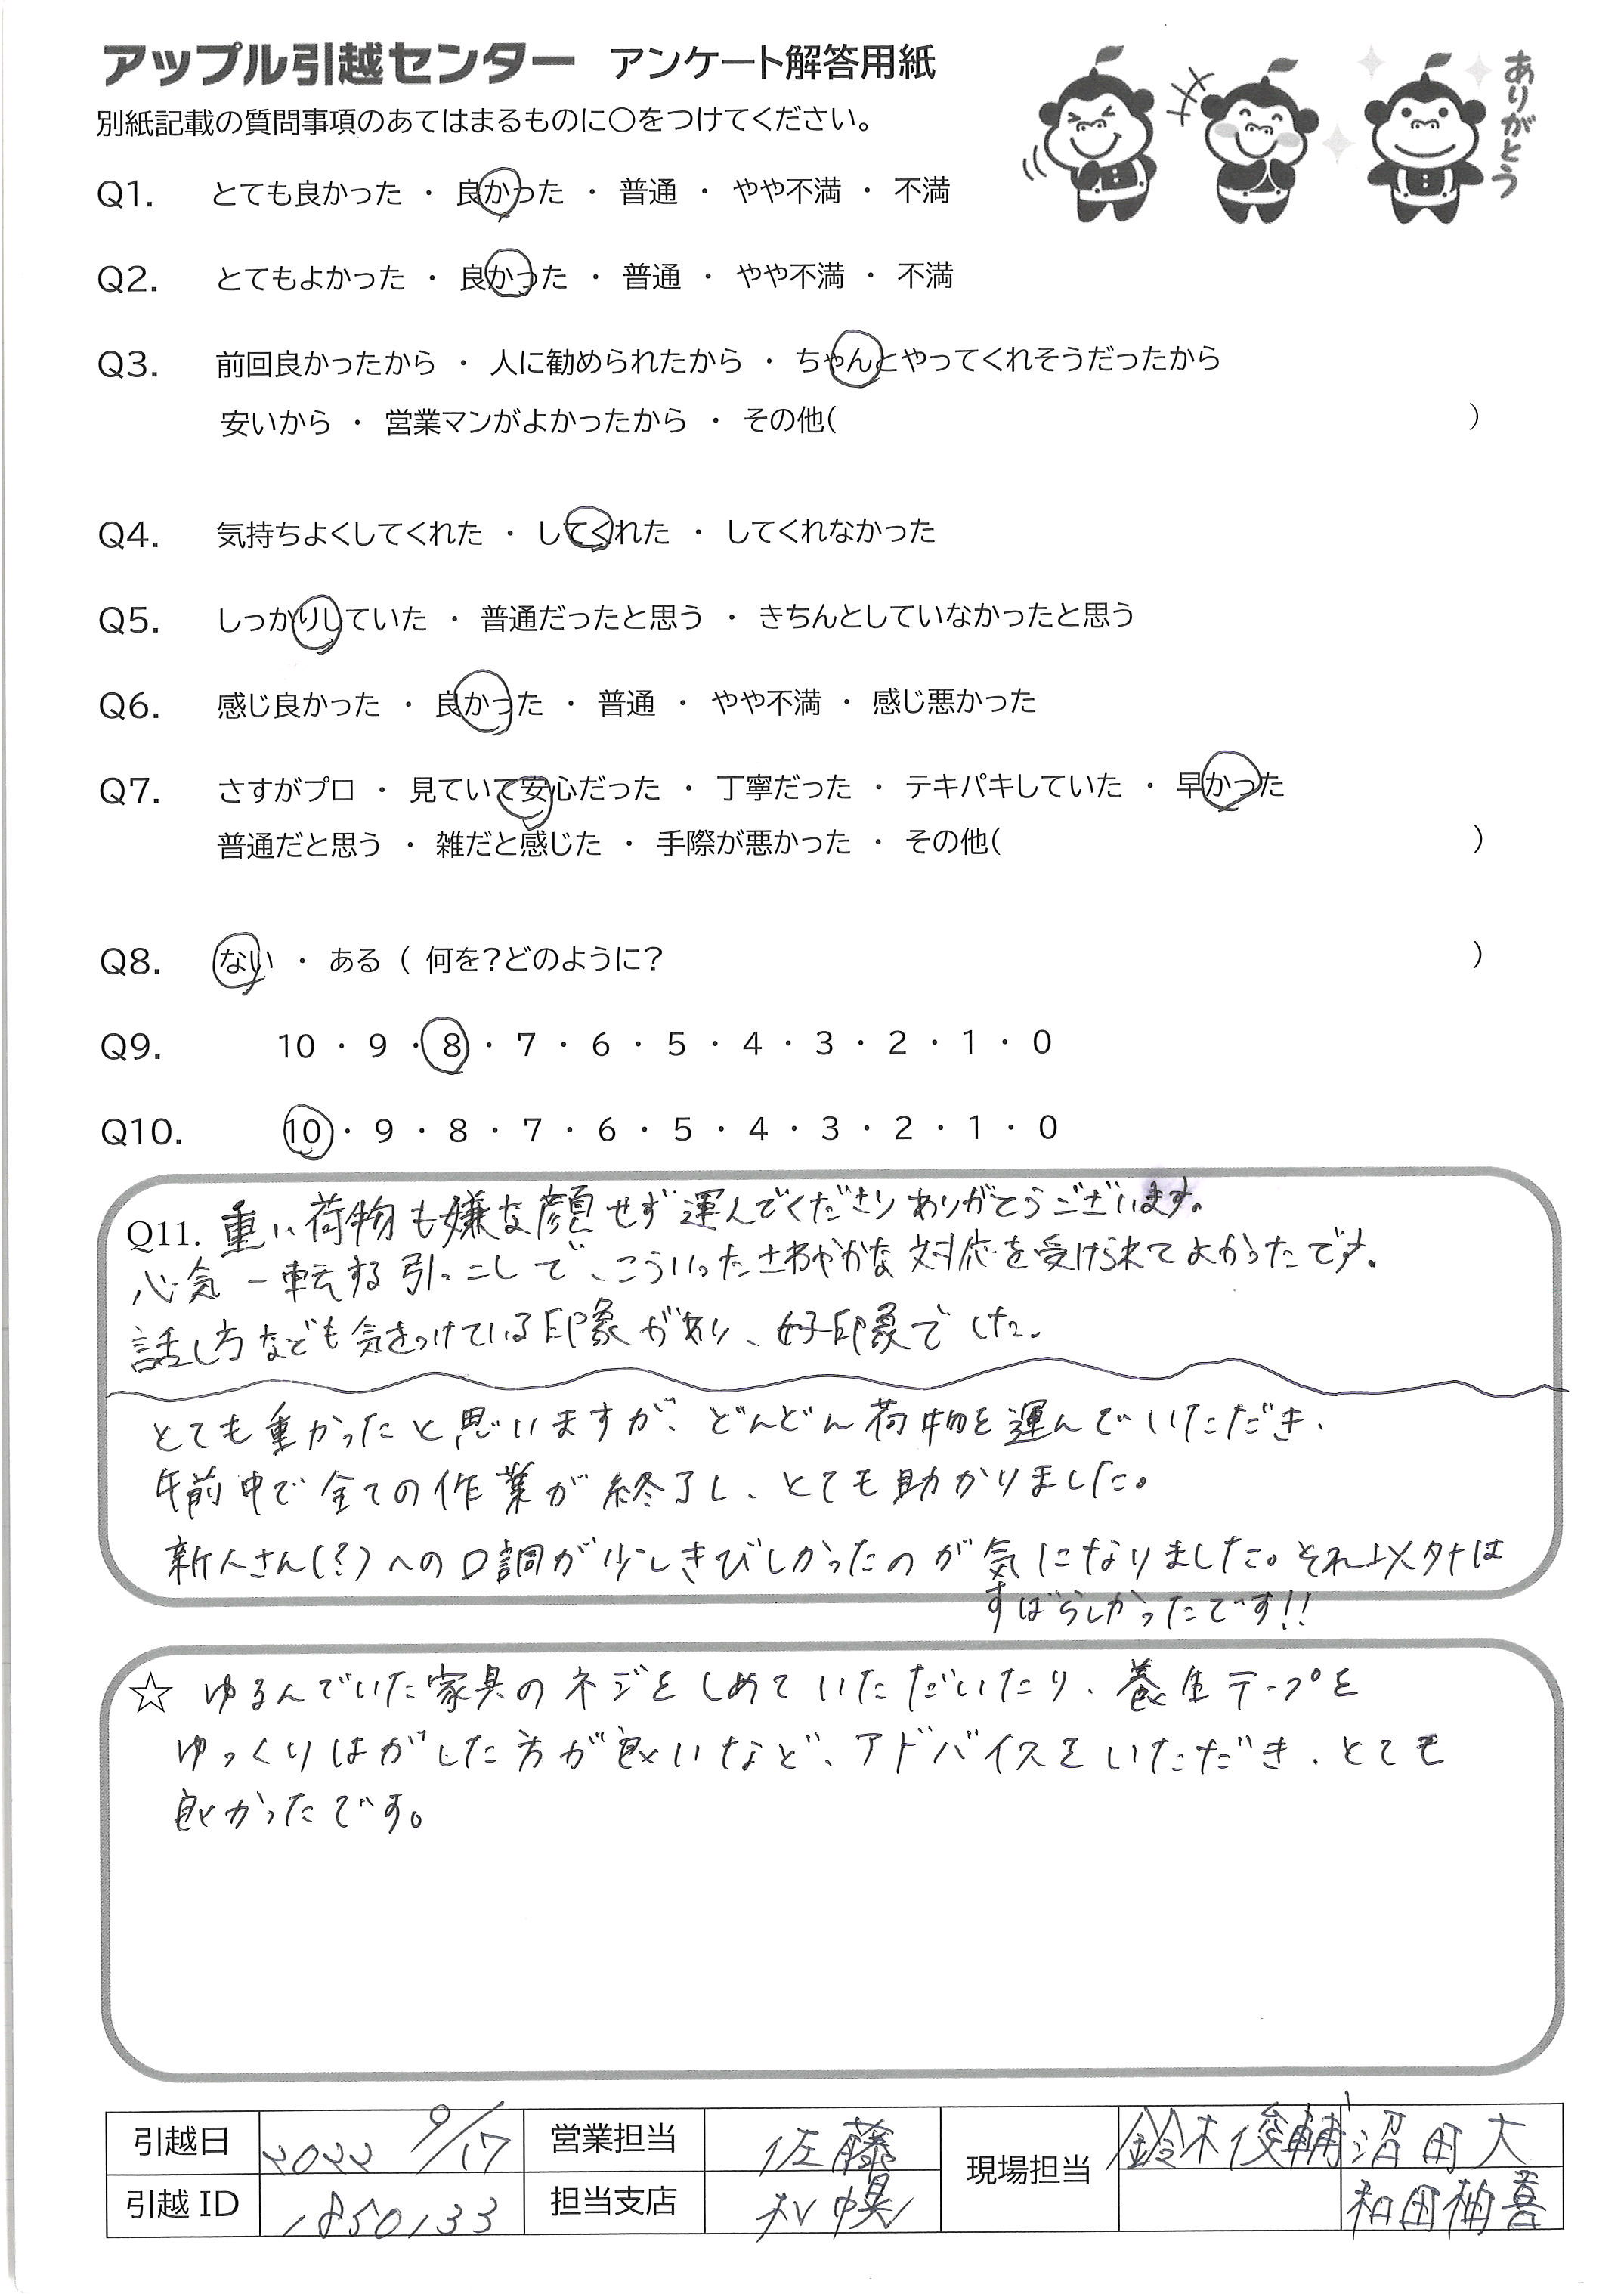 アップル引越センター アンケート解答用紙
ありがとう
別紙記載の質問事項のあてはまるものに〇をつけてください。
Q1. とても良かった ・ 良かった ・ 普通 ・ やや不満 ・ 不満
Q2. とてもよかった ・ 良かった ・ 普通 ・ やや不満 ・ 不満
Q3. 前回良かったから ・ 人に勧められたから ・ ちゃんとやってくれそうだったから
安いから ・ 営業マンがよかったから ・ その他( )
Q4. 気持ちよくしてくれた ・ してくれた ・ してくれなかった
Q5. しっかりしていた ・ 普通だったと思う ・ きちんとしていなかったと思う
Q6. 感じ良かった ・ 良かった ・ 普通 ・ やや不満 ・ 感じ悪かった
Q7. さすがプロ ・ 見ていて安心だった ・ 丁寧だった ・ テキパキしていた ・ 早かった
普通だと思う ・ 雑だと感じた ・ 手際が悪かった ・ その他( )
Q8. ない ・ ある ( 何を?どのように? )
Q9. 10 ・ 9 ・ 8 ・ 7 ・ 6 ・ 5 ・ 4 ・ 3 ・ 2 ・ 1 ・ 0
Q10. 10 ・ 9 ・ 8 ・ 7 ・ 6 ・ 5 ・ 4 ・ 3 ・ 2 ・ 1 ・ 0
Q11. 重い荷物も嫌な顔せず運んでくださりありがとうございます。
心気一転する引っこしで、こういったさわやかな対応を受けられてよかったです。
話し方なども気をつけている印象があり、好印象でした。
とても重かったと思いますが、どんどん荷物を運んでいただき、
午前中で全ての作業が終了し、とても助かりました。
新人さん(?)への口調が少しきびしかったのが気になりました。それ以外は
すばらしかったです!!
☆ ゆるんでいた家具のネジをしめていただいたり、養生テープを
ゆっくりはがした方が良いなど、アドバイスをいただき、とても
良かったです。
引越日 2022 9/17 営業担当 佐藤 現場担当 鈴木俊輔 沼田大
引越ID 1850133 担当支店 札幌 和田柚喜